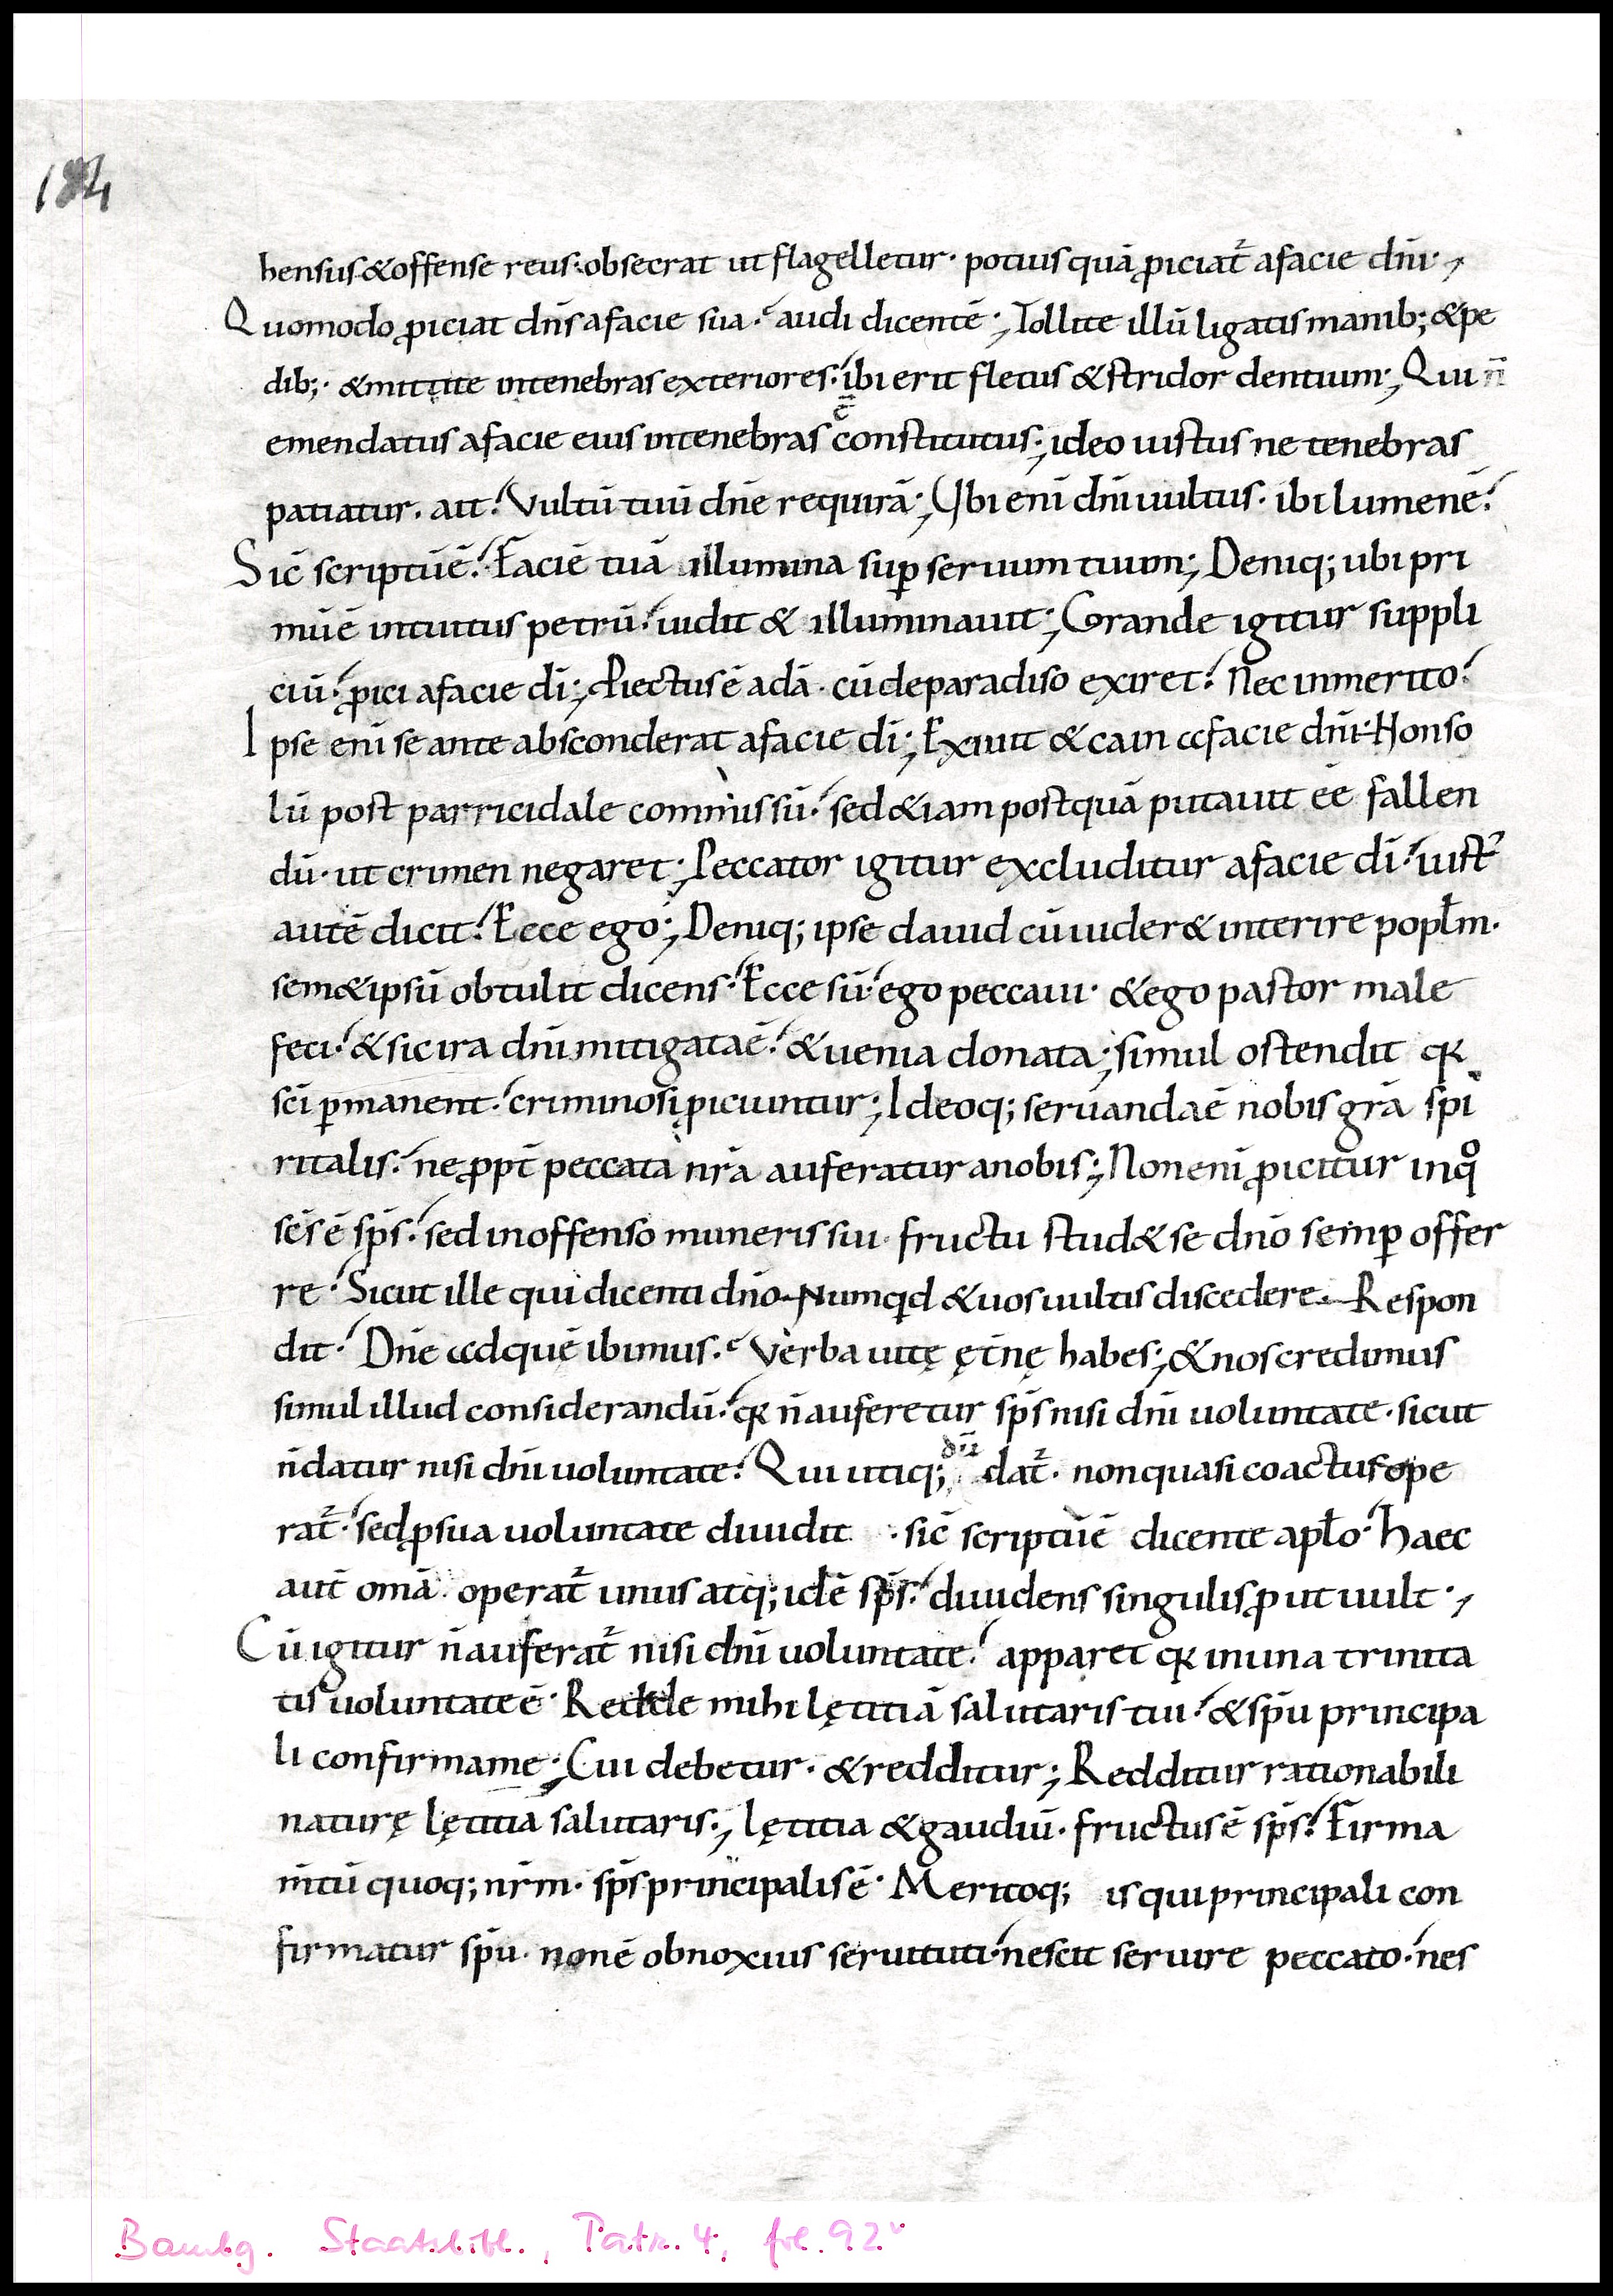 184
hensus &offense reus. obsecrat ut flagelletur. potius quā ꝓiciat᷑ afacie dn̄i.,
Quomodo ꝓiciat dn̄s afacie sua. audi dicentē; Tollite illū ligatis manib; &pe
dib;. &mittite intenebras exteriores. ibi erit fletus &stridor dentium; Qui n̄
ē
emendatus afacie eius intenebras constitutus; ideo iustus ne tenebras
patiatur. ait. Vultū tuū dn̄e requirā; Ubi eni dn̄i uultus. ibi lumen ē.
Sic̄ scriptū ē. Faciē tuā illumina suꝑ seruum tuum; Deniq; ubi pri
mū ē intuitus petrū. uidit & illuminauit; Grande igitur suppli
ciū. ꝓici afacie dī; Eiectus ē adā. cū deparadiso exiret. Nec inmerito.
Ipse eni se ante absconderat afacie dī; Exiuit & cain afacie dn̄i. Non so
lū post parricidale commissū. sed &iam postquā putauit eē fallen
dū. ut crimen negaret; Peccator igitur excluditur afacie dī. iust᷑
autē dicit. Ecce ego; Deniq; ipse dauid cū uider& interire popl̄m.
sem&ipsū obtulit dicens. Ecce sū. ego peccaui. &ego pastor male
feci. & sic ira dn̄i mitigata ē. & uenia donata; simul ostendit qꝛ
sc̄i ꝑmanent. criminosi ꝓiciuntur; Ideoq; seruanda ē nobis grā spi
ritalis. ne ꝓpt̄ peccata nr̄a auferatur anobis; Non eni ꝓicitur inqͦ
sc̄s ē sp̄s. sed inoffenso muneris sui fructu stud& se dn̄o semꝑ offer
re. Sicut ille qui dicenti dn̄o. Numqd &uos uultis discedere. Respon
dit. Dn̄e adquē ibimus. Verba uitę ęt̄nę habes; &nos credimus
simul illud considerandū. qꝛ n̄ auferetur sp̄s nisi dn̄i uoluntate. sicut
n̄ datur nisi dn̄i uoluntate. Qui utiq; dat᷑. nonquasi coactus ope
rat᷑. sed ꝓ sua uoluntate diuidit . sic̄ scriptū ē dicente apl̄o. Haec
aut̄ omā. operat᷑ unus atq; idē sp̄s. diuidens singulis ꝓut uult.,
Cū igitur n̄ auferat᷑ nisi dn̄i uoluntate. apparet qꝛ inuna trinita
tis uoluntate ē. Redde mihi lętitiā salutaris tui. &sp̄u principa
li confirma me; Cui debetur. &redditur; Redditur rationabili
naturę lętitia salutaris; lętitia &gaudiū. fructus ē sp̄s. Firma
m̄tū quoq; nr̄m. sp̄s principalis ē. Meritoq; is qui principali con
firmatur sp̄u. non ē obnoxius seruituti. nescit seruire peccato. nes
Bambg. Staatsbibl., Patr. 4, fol. 92ᵛ